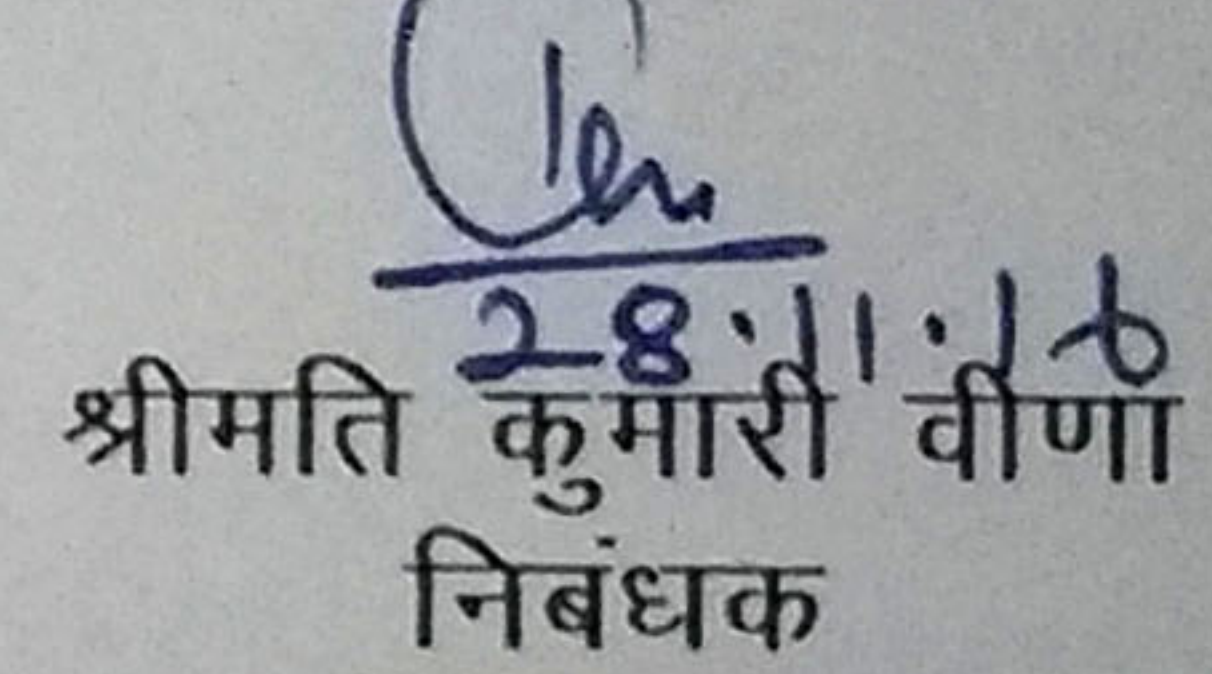 28.11.16
श्रीमति कुमारी वीणा
निबंधक